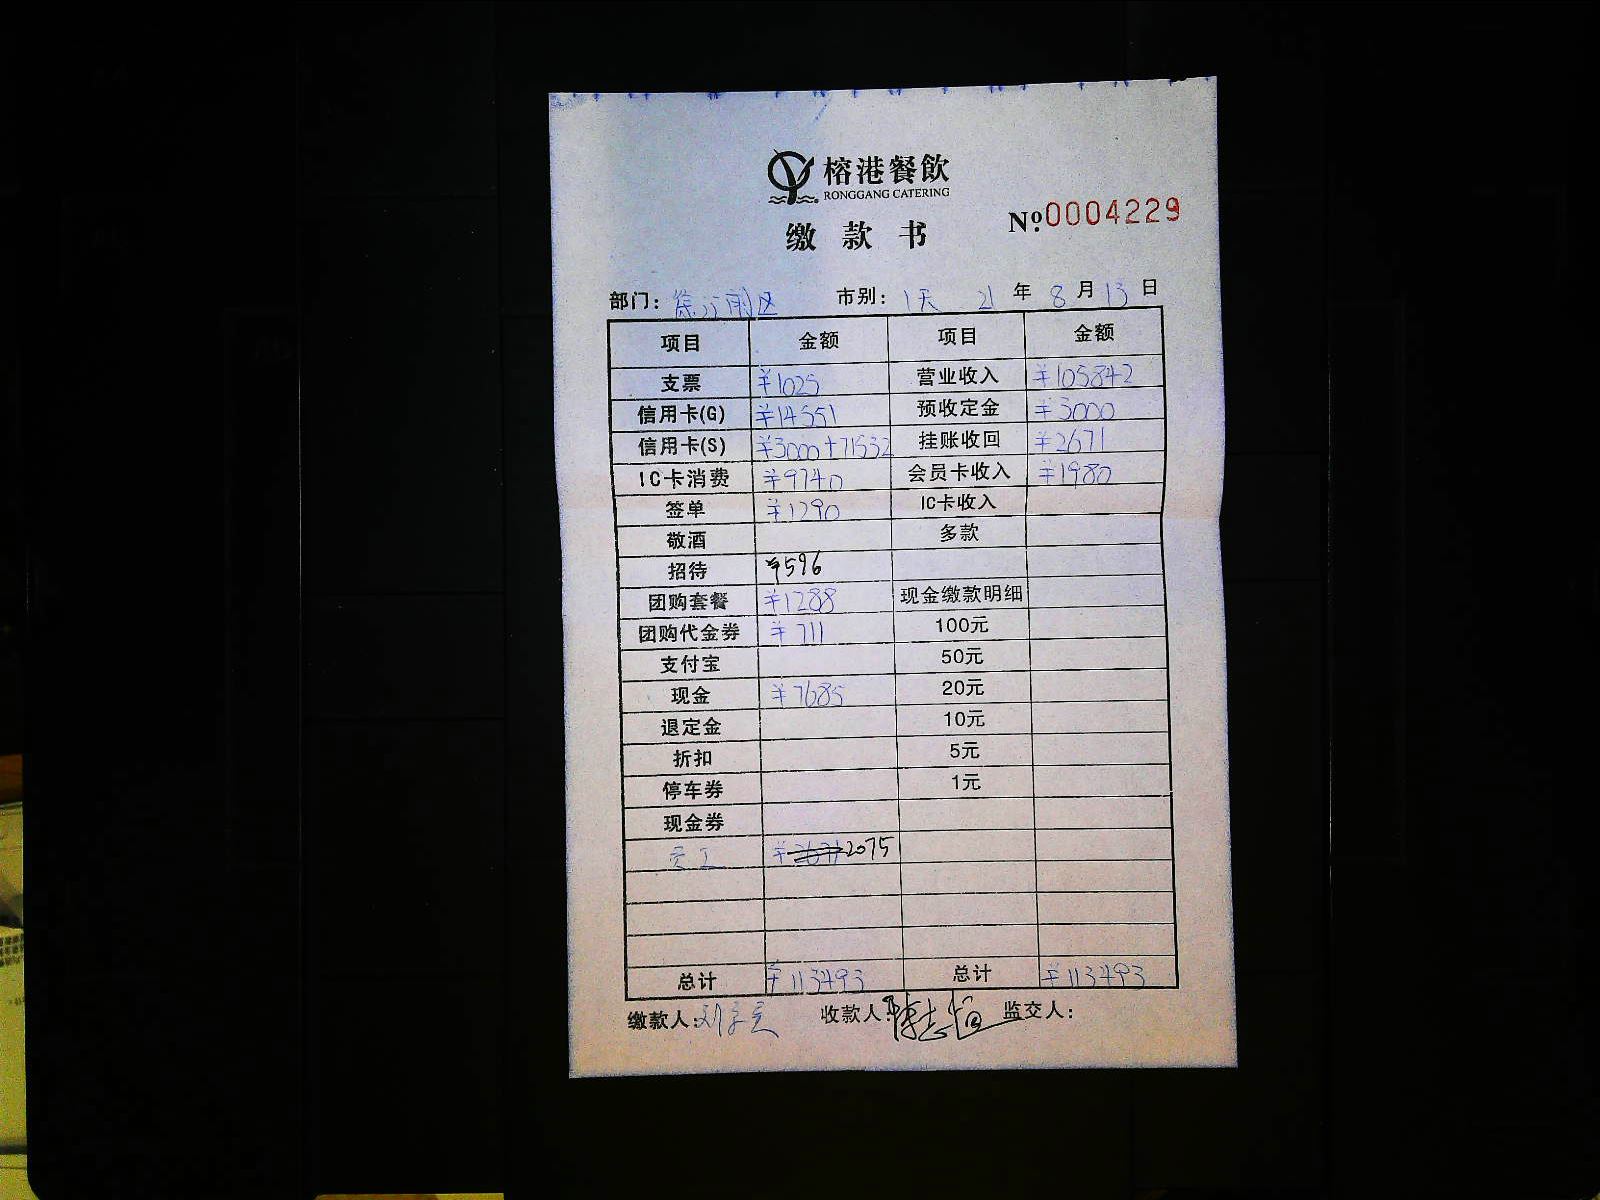 榕港餐飲
RONGGANG CATERING
缴款书
Nº:0004229
部门: 市别: 1天 21 年 8 月 13 日
项目 金额 项目 金额
支票 ¥1025 营业收入 ¥105842
信用卡(G) ¥14551 预收定金 ¥3000
信用卡(S) ¥3000+71532 挂账收回 ¥2671
IC卡消费 ¥9740 会员卡收入 ¥1980
签单 ¥1290 IC卡收入
敬酒 多款
招待 ¥596
团购套餐 ¥1288 现金缴款明细
团购代金券 ¥711 100元
支付宝 50元
现金 ¥7685 20元
退定金 10元
折扣 5元
停车券 1元
现金券
员工 ¥2671 2075
总计 ¥113493 总计 ¥113493
缴款人: 收款人: 监交人: